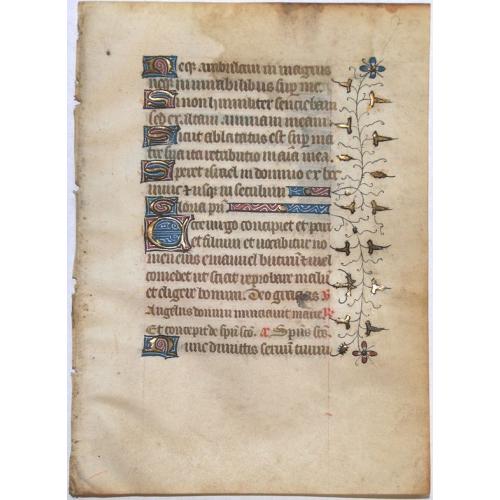 Neq ambulavi in magnis
neq in mirabilibus sup me.
Si non humiliter sentiebam
sed exaltavi animam meam.
Sicut ablactatus est sup ma
tre sua ita retributio in aīa mea.
Speret israel in domino ex hoc
nunc et usq in seculum
Gloria pri
Ecce virgo concipiet et pari
et filium et vocabitur no
men eius emanuel butirū et mel
comedet ut sciat reprobare malū
et eligere bonum. Deo gracias
Angelus domini nunciavit marie
Et concepit de spū sco. Sp̄us scs.
Nunc dimittis servū tuum